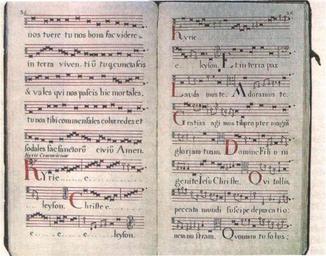 nos tuere tu nos bona fac videre
in terra viven. tiū tu q cuncta scis
& vales qui nos pascis hic mortales,
tuos tibi commensales cohæredes et
sodales fac sanctorū civiū Amen.
Kyrie
Kyrie
e. leyson. Christe e.
e. e. leyson.
Kyrie
e. leyson. Et in terra pax
Laudamus te. Adoramus te.
Gratias agimus tibi propter magnā
gloriam tuam. Domine Fili u ni
genite Iesu Christe. Qui tollis
peccata mundi suscipe deprecatio
nem nostram. Quoniam tu solus